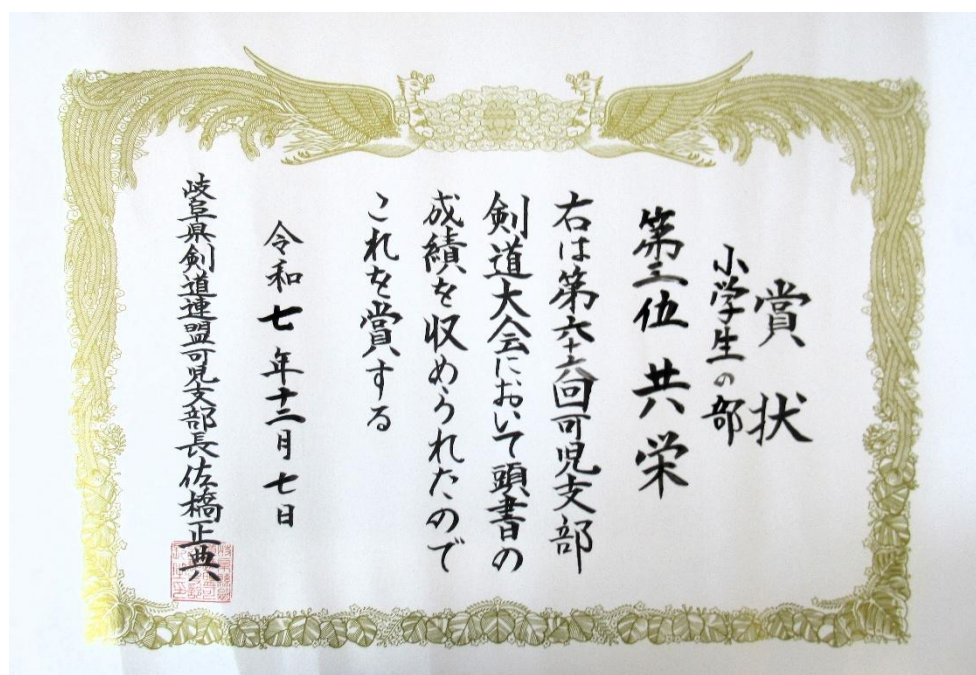 賞状
小学生の部
第三位 共栄
右は第六十六回可児支部
剣道大会において頭書の
成績を収められたので
これを賞する
令和七年十二月七日
岐阜県剣道連盟可児支部長佐橋正典